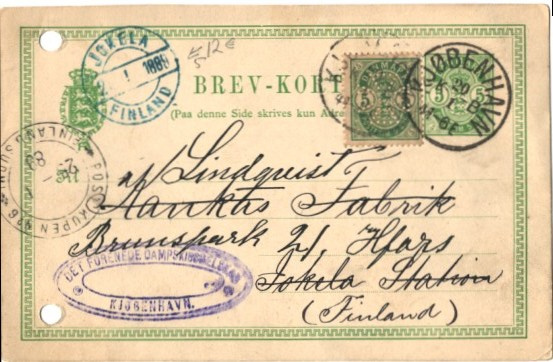 JOKELA
1 1889
FINLAND
12€
5
BREV-KORT
(Paa denne Side skrives kun Adre
5
5 5
KJØBENHAVN
POSTKUPEN No 6
FINLAND
af Lindqvist
Fabrik
Brunspark 21, Hfors
Jokela Station
(Finland)
DET FORENEDE DAMPSKIBSSELSKAB
KJØBENHAVN.